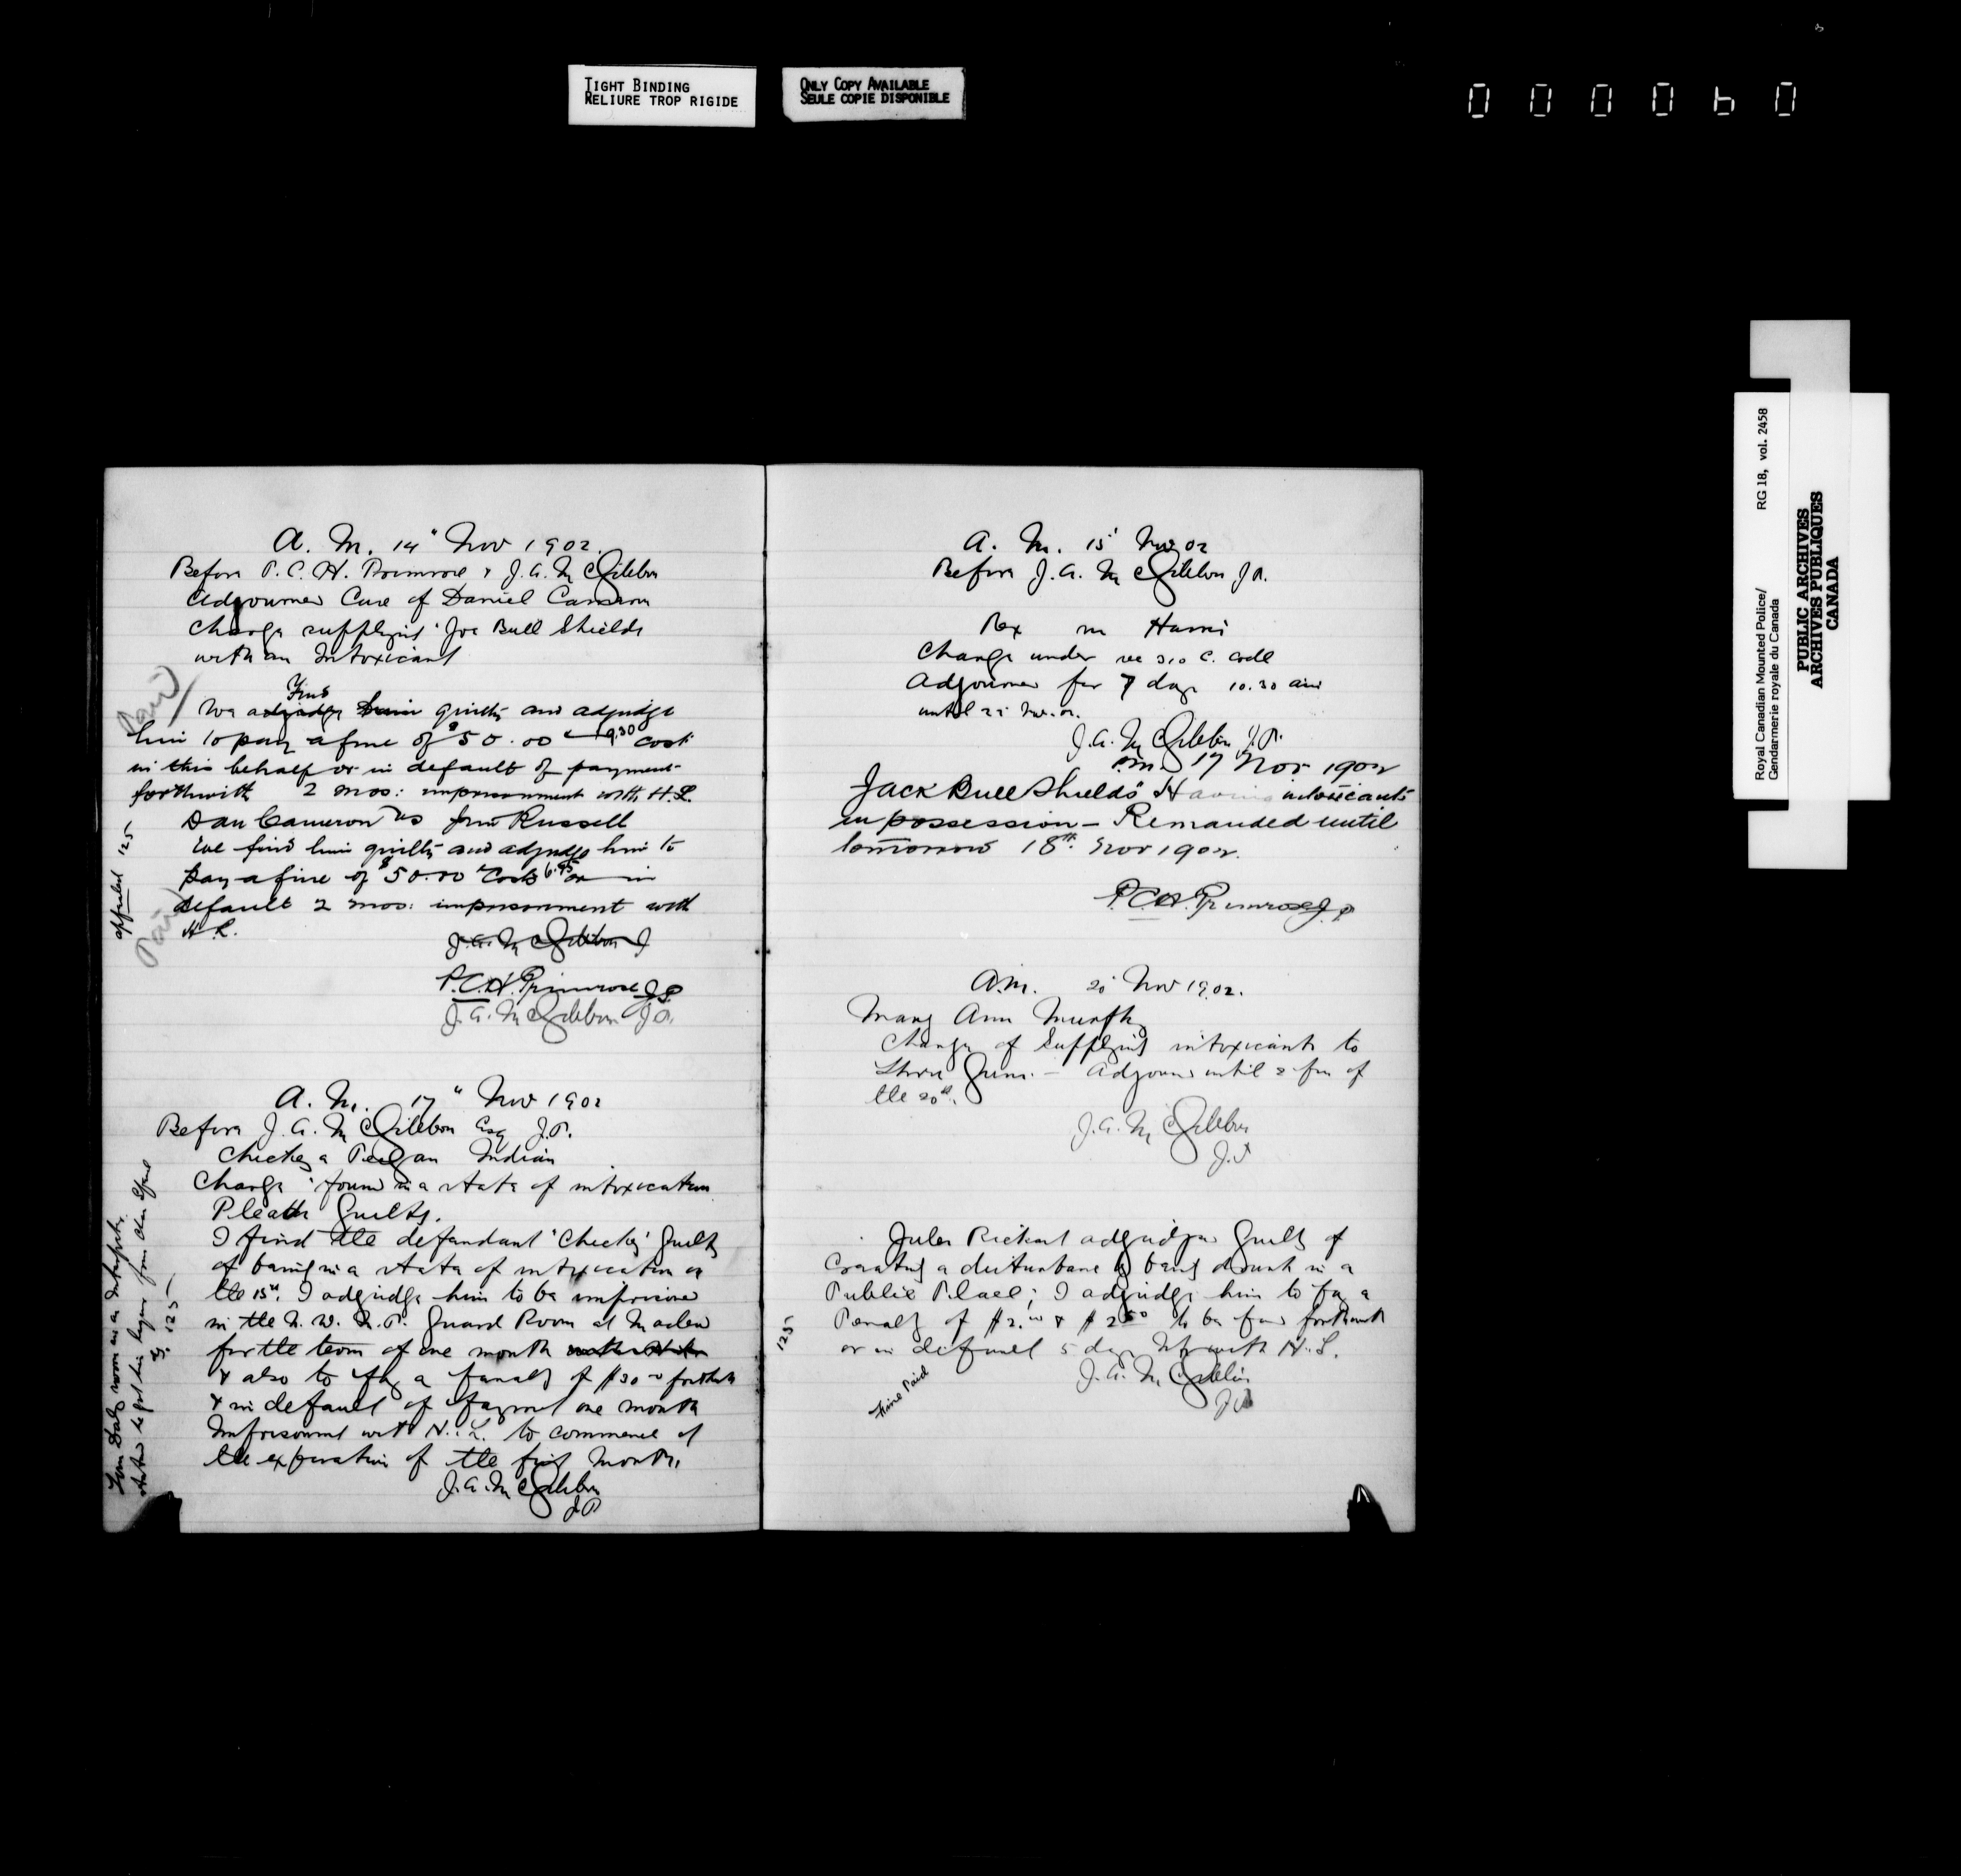 TIGHT BINDING
RELIURE TROP RIGIDE
ONLY COPY AVAILABLE
SEULE COPIE DISPONIBLE
A. M. 14" Nov 1902.
Before P. C. H. Primrose & J. A. McGibbon
Adjourned Case of Daniel Cameron
Charge supplying Joe Bull Shields
with an Intoxicant
Paid
find
We adjudge him guilty and adjudge
him to pay a fine of $50.00 & 9.30 costs
in this behalf or in default of payment
forthwith 2 mos: imprisonment with H.L.
Dan Cameron vs Jim Russell
We find him guilty and adjudge him to
pay a fine of $50.00 & costs 6.95 or in
default 2 mos: imprisonment with
H.L.
125
Paid
J. A. McGibbon J
P.C.H. Primrose J.P
J. A. McGibbon J.P.
A. M. 17" Nov 1902
Before J. A. McGibbon Esq J.P.
Chickey a Peigan Indian
Charge 'found in a state of intoxication
Pleads Guilty.
I find the defendant 'Chickey' Guilty
of being in a state of intoxication on
the 15th. I adjudge him to be imprisoned
in the N. W. M. P. Guard Room at Macleod
for the term of one month
& also to pay a penalty of $30 00 forthwith
& in default of payment one month
Imprisonment with H. L. to commence at
the expiration of the first month.
J. A. McGibbon
J.P
Tom Daly sworn in as Interpreter
states he got his liquor from
125
A. M. 15 Nov 02
Before J. A. McGibbon J P.
Rex vs Harris
Charge under sec 310 C. Code
Adjourned for 7 days 10.30 am
until 22 Nov. 02.
J. A. McGibbon J.P.
P.m. 17 Nov 1902
Jack Bull Shields Having intoxicants
in possession — Remanded until
tomorrow 18th. Nov 1902.
P.C.H. Primrose J.P
A.M. 20 Nov 1902.
Mary Ann Murphy
Charge of Supplying intoxicants to
Guns. — Adjourned until 2 pm of
the 20th.
J. A. McGibbon
J.P
Jules Rickert adjudged Guilty of
Creating a disturbance by being drunk in a
Public Place; I adjudge him to pay a
Penalty of $2.00 & $2 50 to be paid forthwith
or in default 5 days Imp with H. L.
J. A. McGibbon
J P
125
Fine Paid
Royal Canadian Mounted Police/
Gendarmerie royale du Canada
RG 18, vol. 2458
PUBLIC ARCHIVES
ARCHIVES PUBLIQUES
CANADA